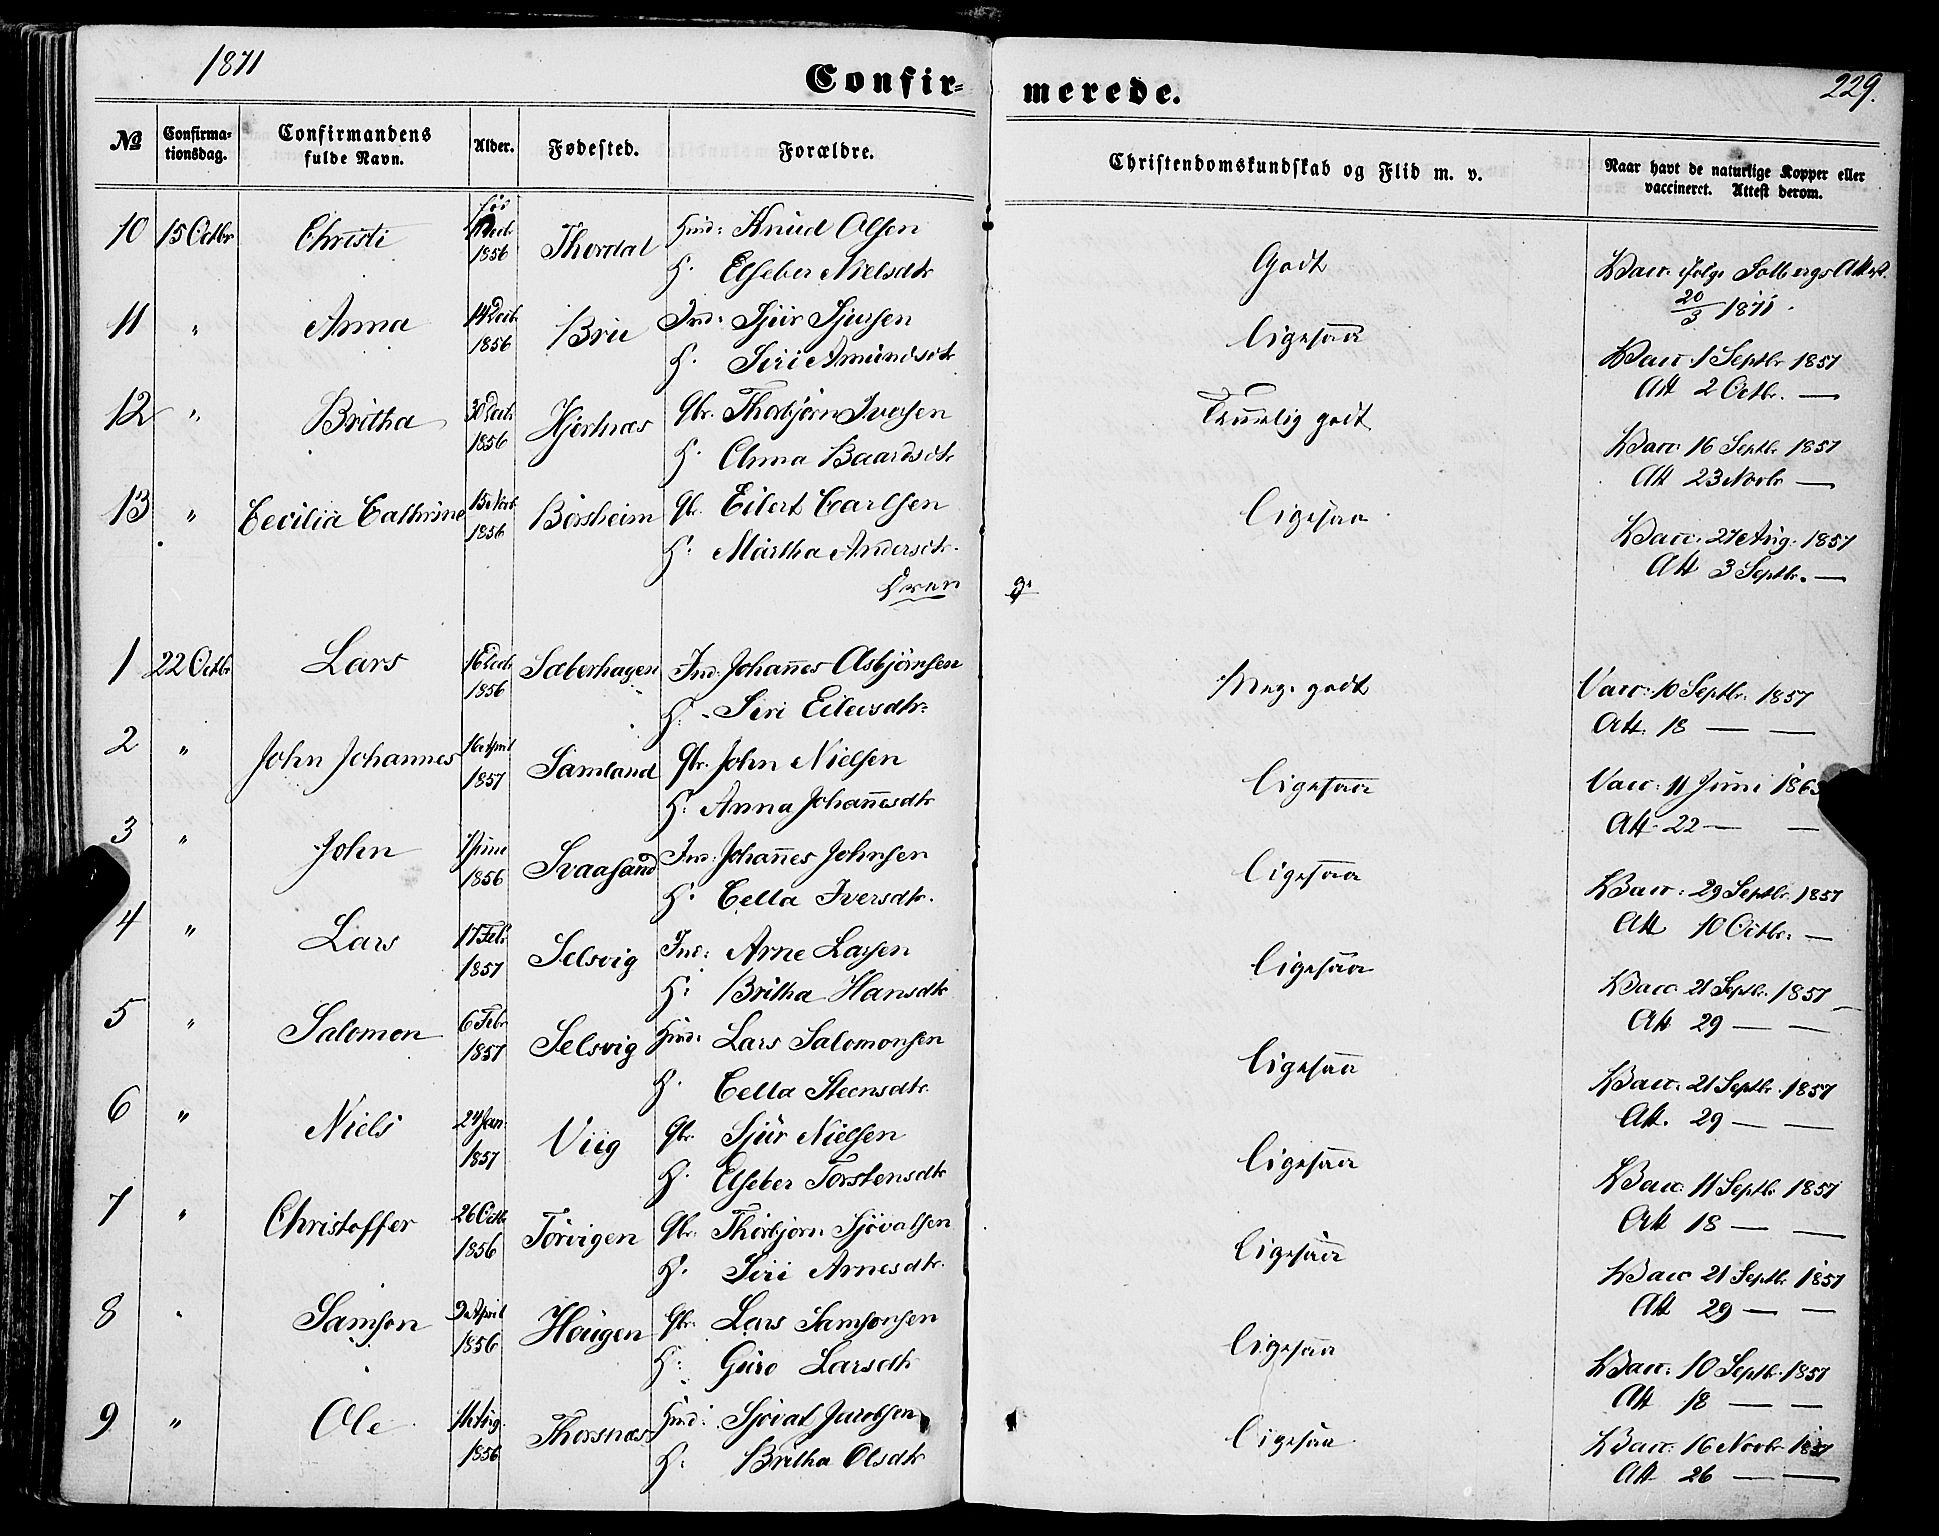 1871
Confir-
merede.
229.
№
Confirma-
tionsdag.
Confirmandens
fulde Navn.
Alder.
Fødested.
Forældre.
Christendomskundskab og Flid m. v.
Naar havt de naturlige Kopper eller
vaccineret. Attest derom.
10 15 Octbr Christi Decb. Thordal Huusm: Knud Olsen
1856 H. Elseber Nielsdtr
Godt
Vacc. ifølge Solbergs Attest.
20/3 1871.
11 " Anna 14 Decb. Brue Ind: Sjur Sjursen
1856 H. Siri Amundsdtr
Ligesaa
Vacc. 1 Septbr 1857
Att 2 Octbr. —
12 " Britha 30 Decb. Hjertnæs Gbr. Thorbjørn Iversen
1856 H. Anna Baardsdtr
Temmelig godt
Vacc. 16 Septbr 1857
Att 23 Novbr —
13 " Cecilia Cathrine 15 Novb. Børsheim Gbr. Eilert Carlsen
1856 H: Märtha Andersdtr.
Ligesaa
Vacc. 27 Aug. 1857
Att 3 Septbr. —
Dren ge
1 22 Octbr Lars 16 Decb. Sæberhagen Ind. Johannes Asbjørnsen
1856 H: Siri Eilersdtr
Meg. godt
Vacc: 10 Septbr. 1857
Att. 18 — —
2 " John Johannes 16 April Samland Gbr. John Nielsen
1857 H: Anna Johannesdtr
Ligesaa
Vacc: 11 Juni 186
Att. 22 — —
3 " John Juni Svaasand Ind. Johannes Johnsen
1856 H. Cella Iversdtr.
Ligesaa
Vacc: 29 Septbr. 1857
Att 10 Octbr: —
4 " Lars 17 Febr Selsvig Ind: Arne Larsen
1857 H: Britha Hansdtr
Ligesaa
Vacc. 21 Septbr. 1857
Att 29 — —
5 " Salomon 6 Febr Selsvig Huusm: Lars Salomonsen
1857 H. Cella Steensdtr.
Ligesaa
Vacc. 21 Septbr. 1857
Att. 29 — —
6 " Niels 24 Jan. Viig Gbr. Sjur Nielsen
1857 H. Elseber Torstensdtr
Ligesaa
Vacc. 11 Septbr 1857
Att 18 — —
7 " Christoffer 26 Octb. Torvigen Gbr. Thorbjørn Sjovatsen
1856 H. Siri Arnesdtr.
Ligesaa
Vacc 21 Septbr 1857
Att 29 — —
8 " Samson 9 April Haugen Gbr. Lars Samsonsen
1856 H: Guro Larsdtr
Ligesaa
Vacc: 10 Septbr. 1857
Att 18 — —
9 " Ole Aug. Thorsnæs Huusm: Sjovat Jacobsen
1856 H: Britha Olsdtr
Ligesaa
Vacc: 16 Novbr 1857
Att 26 — —